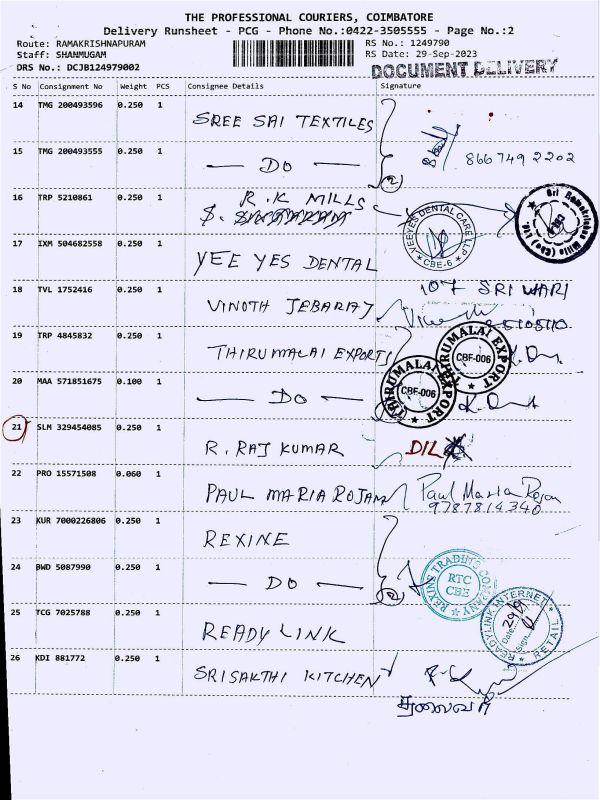 THE PROFESSIONAL COURIERS, COIMBATORE
Delivery Runsheet - PCG - Phone No.:0422-3505555 - Page No.:2
Route: RAMAKRISHNAPURAM RS No.: 1249790
Staff: SHANMUGAM RS Date: 29-Sep-2023
DRS No.: DCJB124979002 DOCUMENT DELIVERY
S No Consignment No Weight PCS Consignee Details Signature
14 TMG 200493596 0.250 1 SREE SAI TEXTILES
15 TMG 200493555 0.250 1 — DO — 866749 2202
2
16 TRP 5210861 0.250 1 R.K MILLS
S.
VEEYES DENTAL CARE LLP CBE-6
Sri Ramakrishna Mills (Cbe) Ltd.
17 IXM 504682558 0.250 1 YEE YES DENTAL
18 TVL 1752416 0.250 1 VINOTH JEBARAJ 107 SRI WARI
19 TRP 4845832 0.250 1 THIRUMALAI EXPORTS
THIRUMALAI EXPORT CBE-006
20 MAA 571851675 0.100 1 — DO —
THIRUMALAI EXPORT CBE-006
21 SLM 329454085 0.250 1 R. RAJ KUMAR DIL
22 PRO 15571508 0.060 1 PAUL MARIA ROJAN Paul Maria Rojan
9787814340
23 KUR 7000226806 0.250 1 REXINE
24 BWD 5087990 0.250 1 — DO — 2
REXINS TRADING COMPANY RTC CBE
25 TCG 7025788 0.250 1 READY LINK
READYLINK INTERNET RETAIL Date: 29/9 Sign
26 KDI 881772 0.250 1 SRISAKTHI KITCHEN